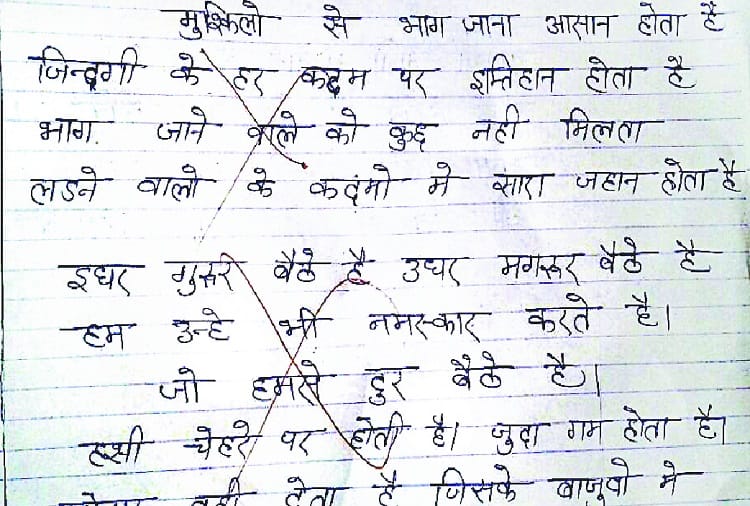 मुश्किलो से भाग जाना आसान होता है
जिन्दगी के हर कदम पर इम्तिहान होता है
भाग. जाने वाले को कुछ नही मिलता
लडने वालो के कदमो मे सारा जहान होता है
इधर गुरुर बैठे है उधर मगरूर बैठे है
हम उन्हे भी नमस्कार करते है।
जो हमसे दुर बैठे है।
हसी चेहरे पर होती है। जुदा गम होता है।
नही देता है जिसके बाजुवो मे